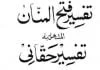 تفسير فتح المنان
المشهور به
تفسير حقانی